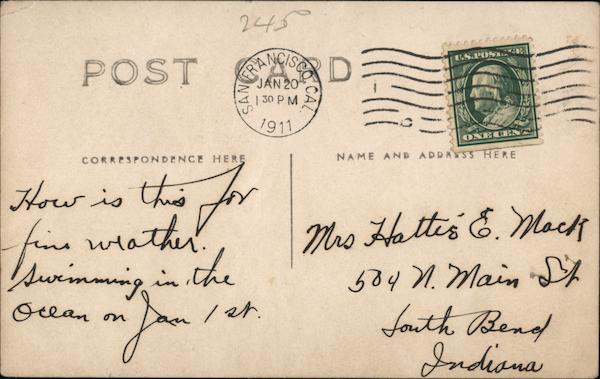 245
POST CARD
SAN FRANCISCO, CAL.
JAN 20
1 30 PM
1911
U.S. POSTAGE
ONE CENT
CORRESPONDENCE HERE
NAME AND ADDRESS HERE
How is this for
fine weather.
Swimming in the
Ocean on Jan 1 st.
Mrs Hattie E. Mack
504 N. Main St
South Bend
Indiana